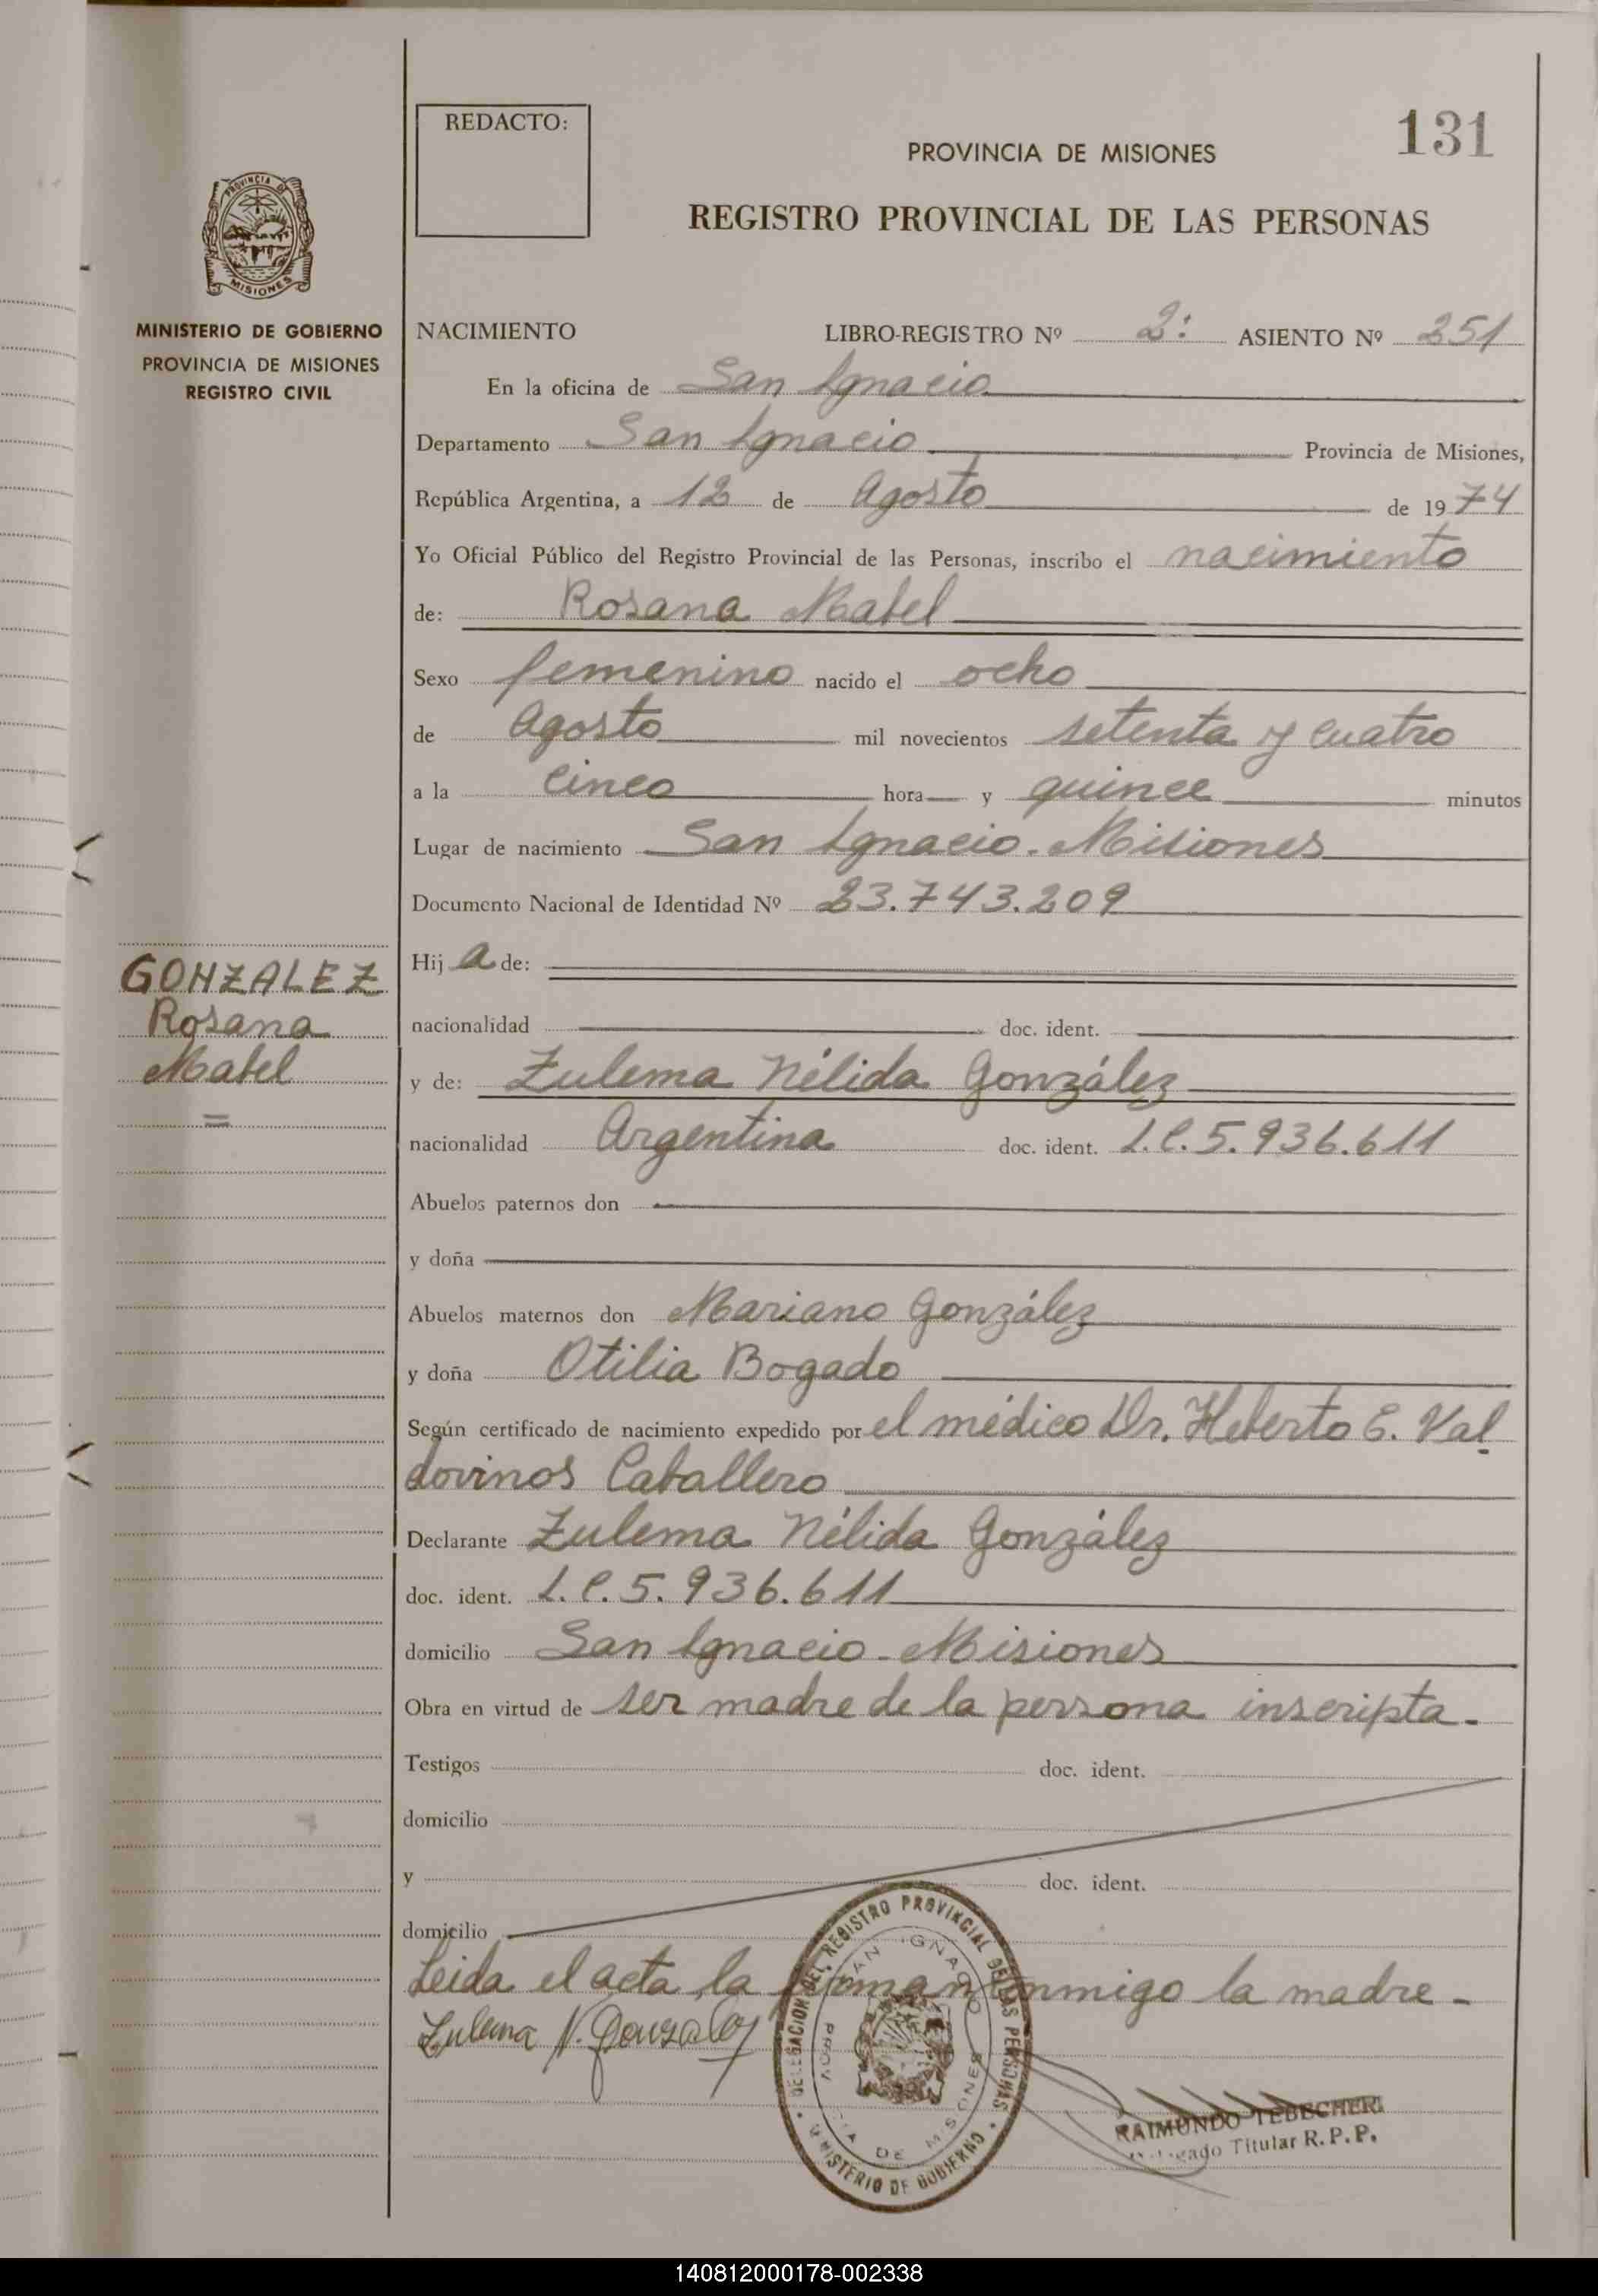 REDACTO:
131
PROVINCIA DE MISIONES
REGISTRO PROVINCIAL DE LAS PERSONAS
PROVINCIA DE
MISIONES
MINISTERIO DE GOBIERNO
PROVINCIA DE MISIONES
REGISTRO CIVIL
NACIMIENTO LIBRO-REGISTRO Nº 2: ASIENTO Nº 251
En la oficina de San Ignacio
Departamento San Ignacio Provincia de Misiones,
República Argentina, a 12 de Agosto de 1974
Yo Oficial Público del Registro Provincial de las Personas, inscribo el nacimiento
de: Rosana Mabel
Sexo femenino nacido el ocho
de Agosto mil novecientos setenta y cuatro
a la cinco hora y quince minutos
Lugar de nacimiento San Ignacio. Misiones
Documento Nacional de Identidad Nº 23.743.209
GONZALEZ
Rosana
Mabel
=
Hija de:
nacionalidad doc. ident.
y de: Zulema Nélida González
nacionalidad Argentina doc. ident. L.C.5.936.611
Abuelos paternos don
y doña
Abuelos maternos don Mariano González
y doña Otilia Bogado
Según certificado de nacimiento expedido por el médico Dr. Heberto E. Val
dovinos Caballero
Declarante Zulema Nélida González
doc. ident. L.C.5.936.611
domicilio San Ignacio - Misiones
Obra en virtud de ser madre de la persona inscripta.
Testigos doc. ident.
domicilio
y doc. ident.
domicilio
Leida el acta la firman conmigo la madre -
Zulema N. Gonzalez
DELEGACION DEL REGISTRO PROVINCIAL DE LAS PERSONAS
MINISTERIO DE GOBIERNO
SAN IGNACIO
PROVINCIA DE MISIONES
RAIMUNDO TEBECHERI
Delegado Titular R.P.P.
140812000178-002338